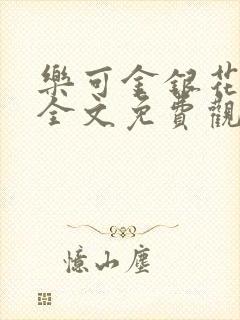 樂可金銀花
全文免費觀
憶山塵